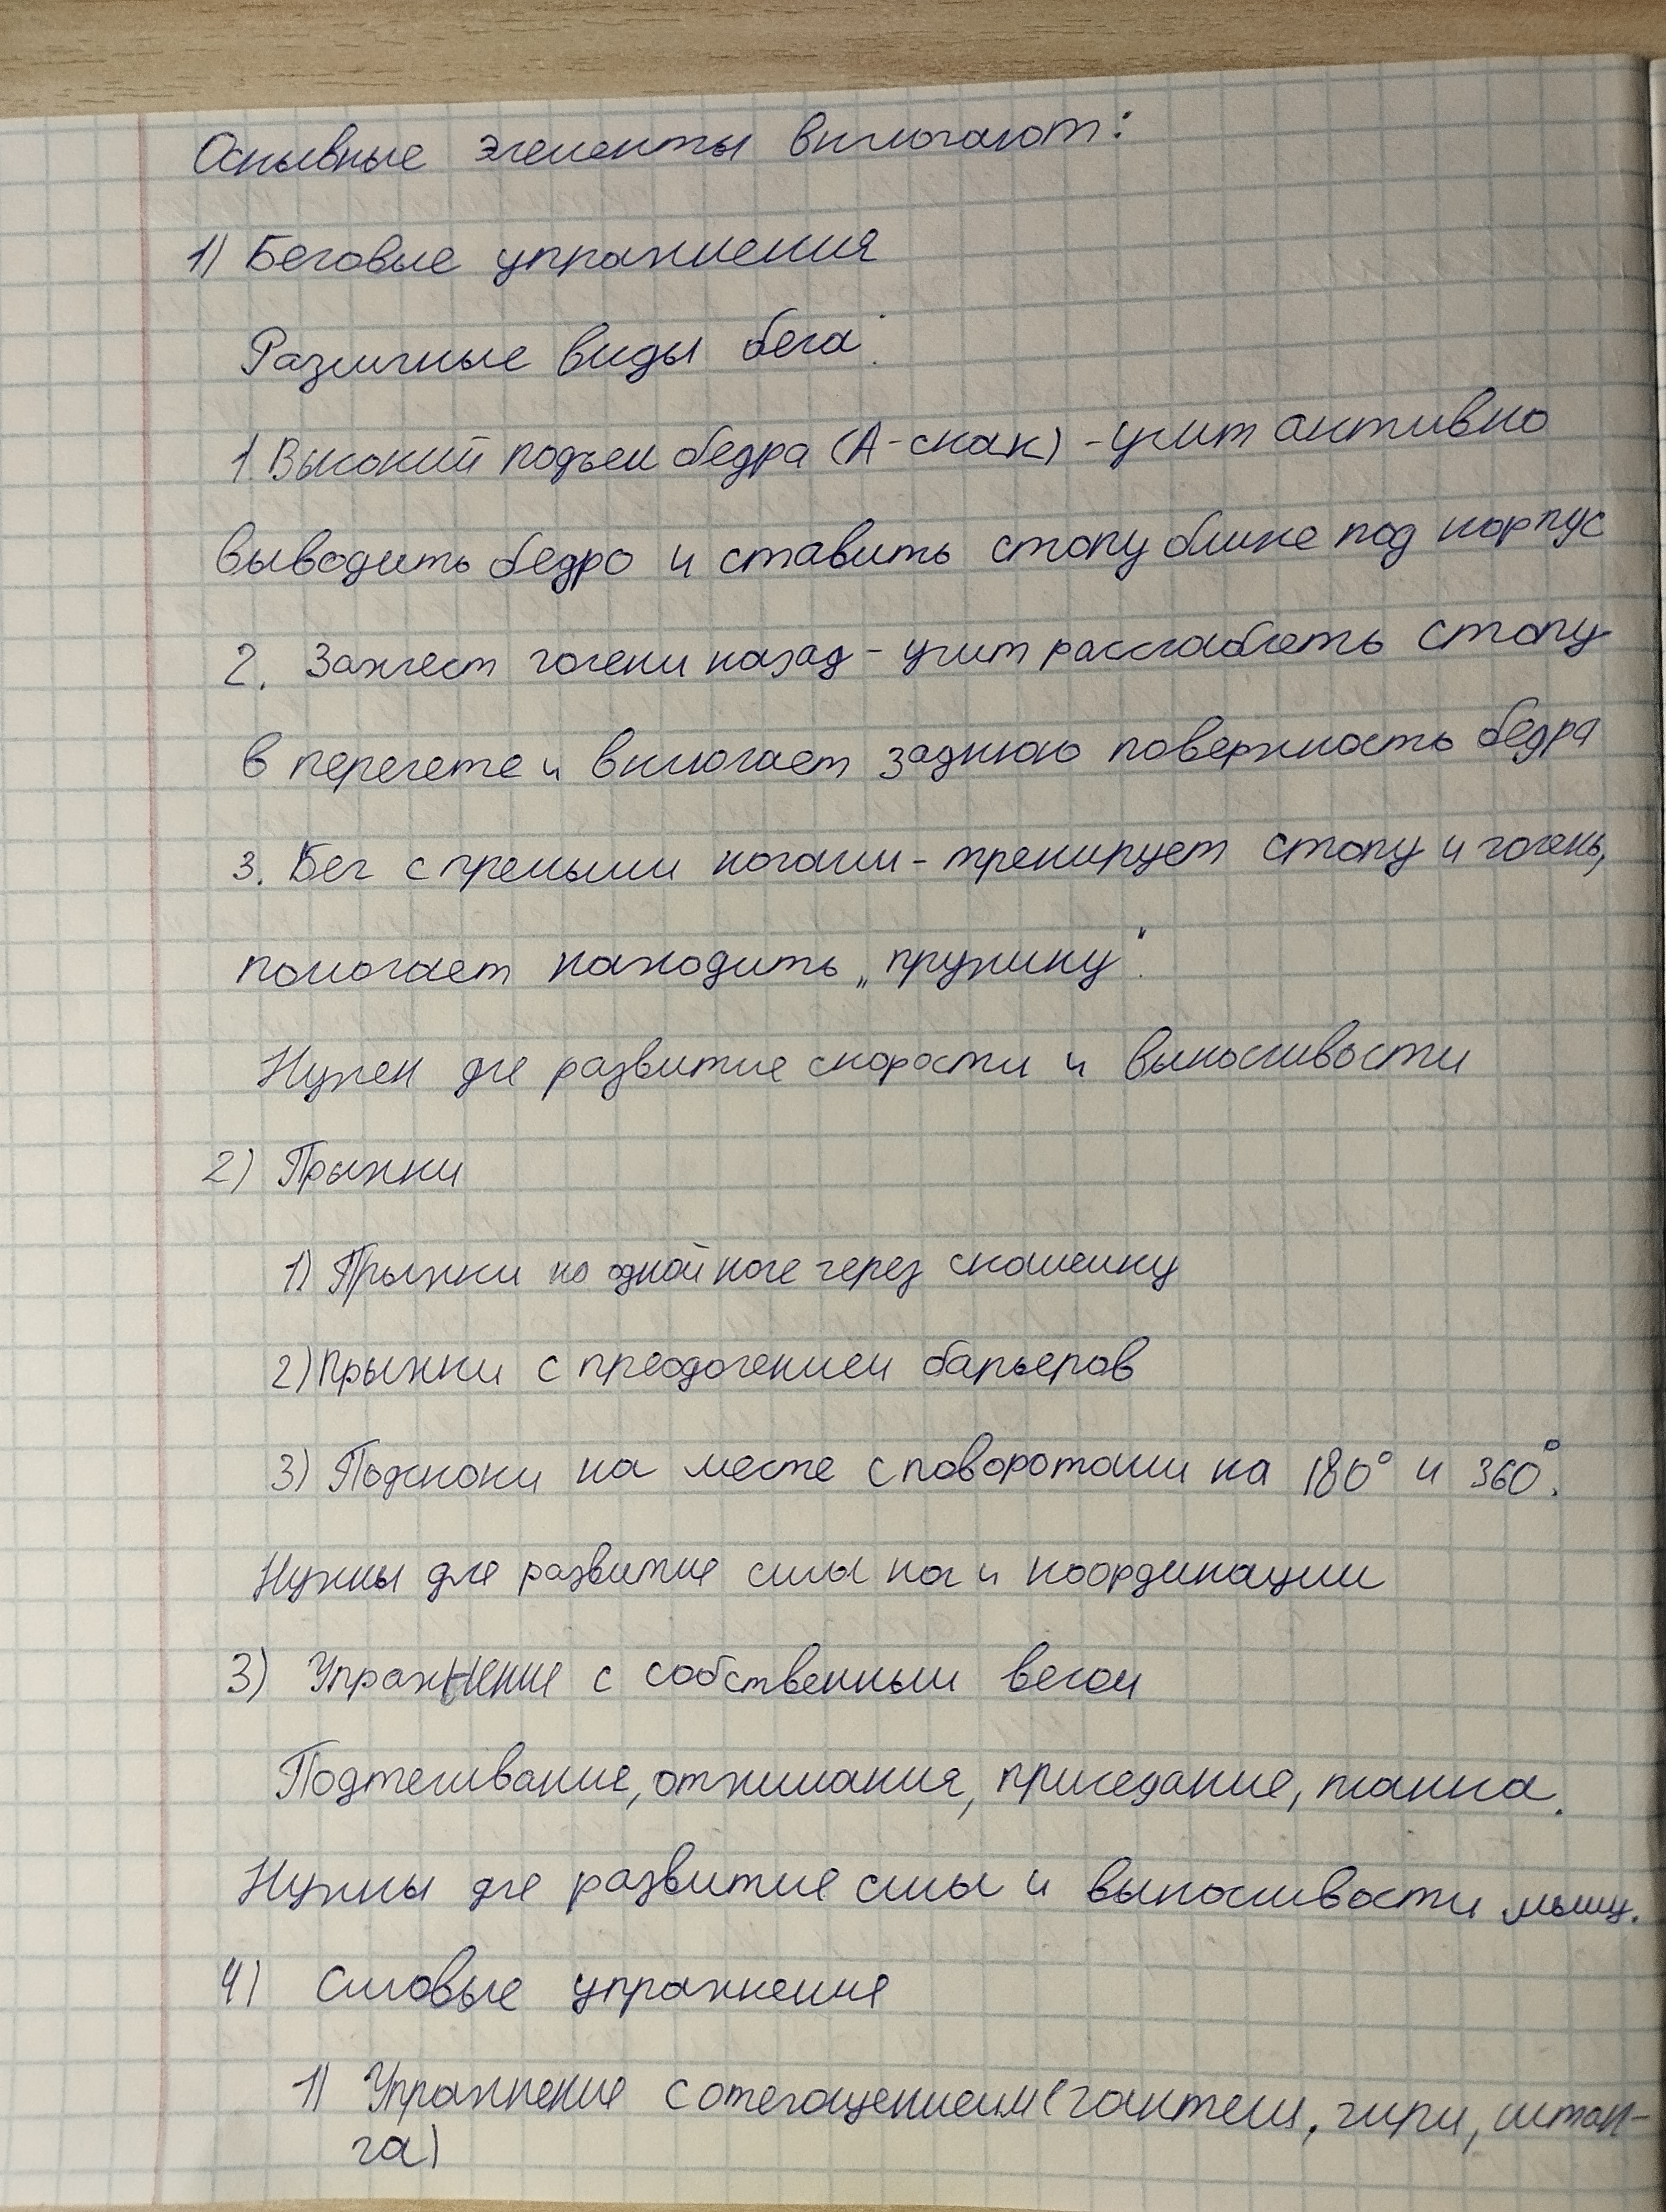 Основные элементы включают:
1) Беговые упражнения
Различные виды бега:
1. Высокий подъем бедра (А-скак) - учит активно
выводить бедро и ставить стопу ближе под корпус
2. Захлест голени назад - учит расслаблять стопу
в перелете и включает заднюю поверхность бедра
3. Бег с прямыми ногами - тренирует стопу и голень,
помогает находить „пружину".
Нужен для развитие скорости и выносливости
2) Прыжки
1) Прыжки на одной ноге через скамейку
2) Прыжки с преодолением барьеров
3) Подскоки на месте с поворотами на 180° и 360°.
Нужны для развитие силы ног и координации
3) Упражнение с собственным весом
Подтягивание, отжимания, приседание, планка.
Нужны для развитие силы и выносливости мышц.
4) Силовые упражнения
1) Упражнение с отягощением (гантели, гири, штан-
га)